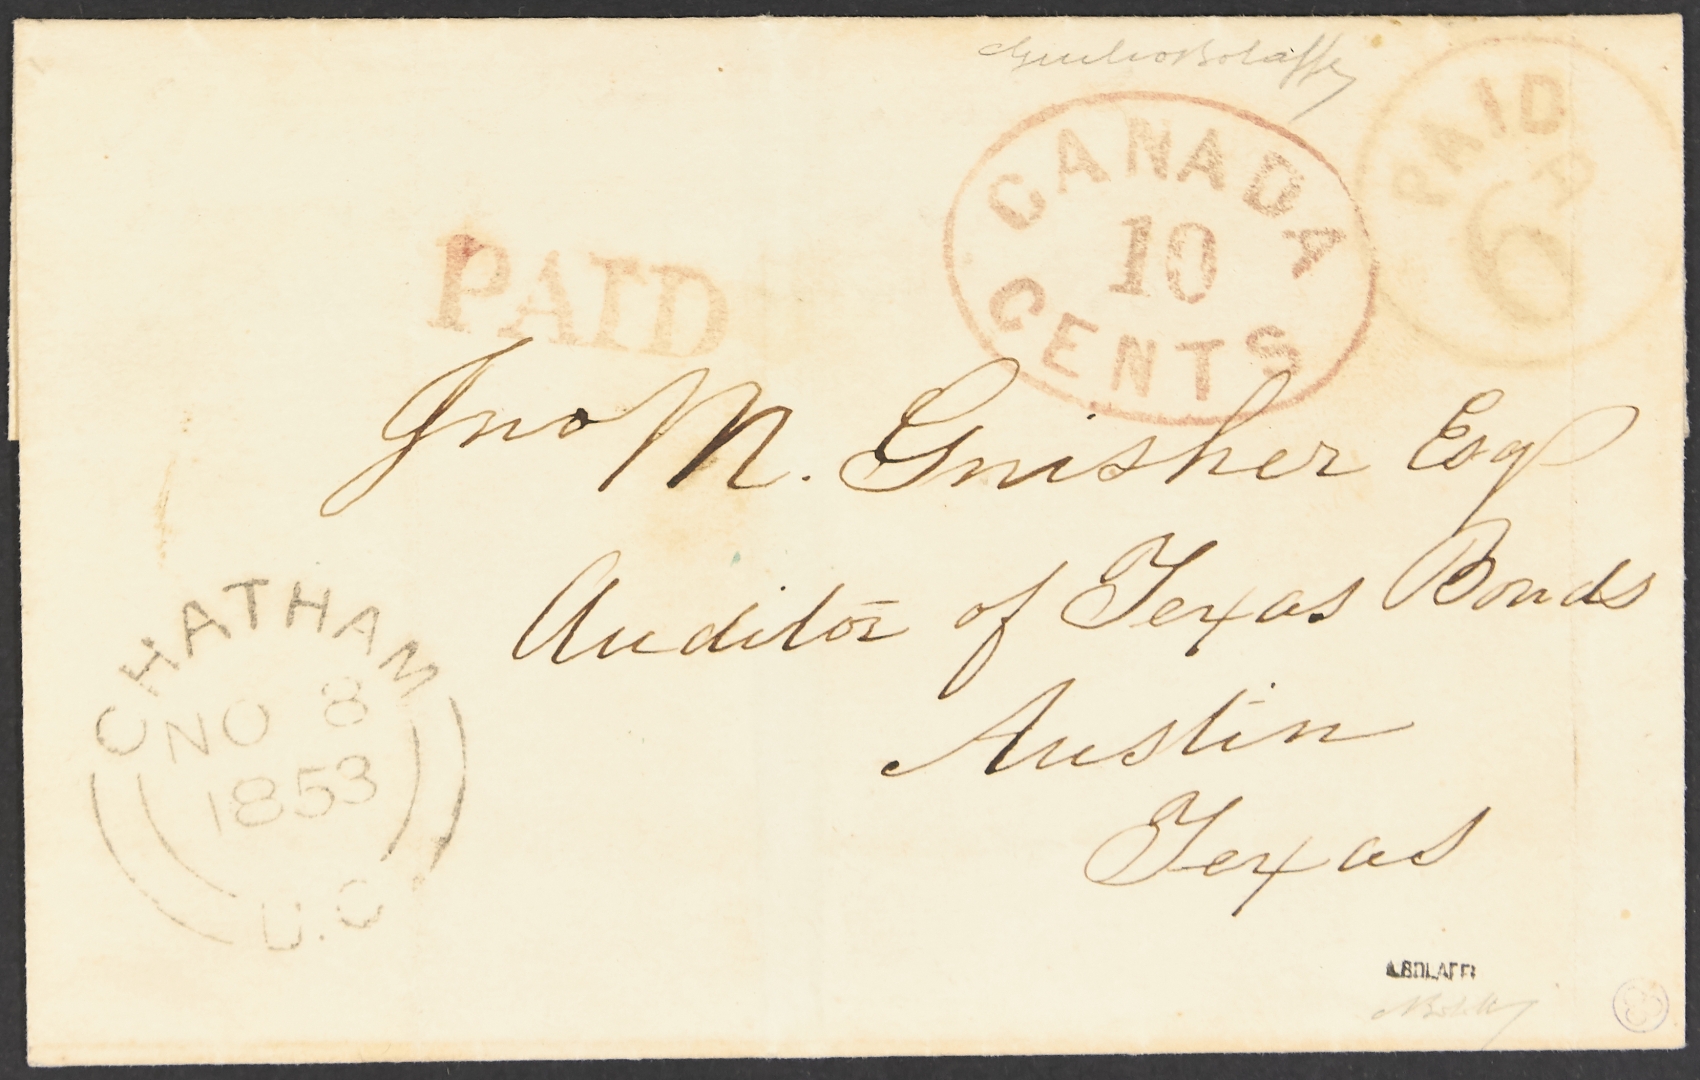 Giulio Bolaffi
PAID
6
PAID
CANADA
10
CENTS
Jno M. Gnisher Esq
Auditor of Texas Bonds
Austin
Texas
CHATHAM
NO 8
1853
U.C
A.BOLAFFI